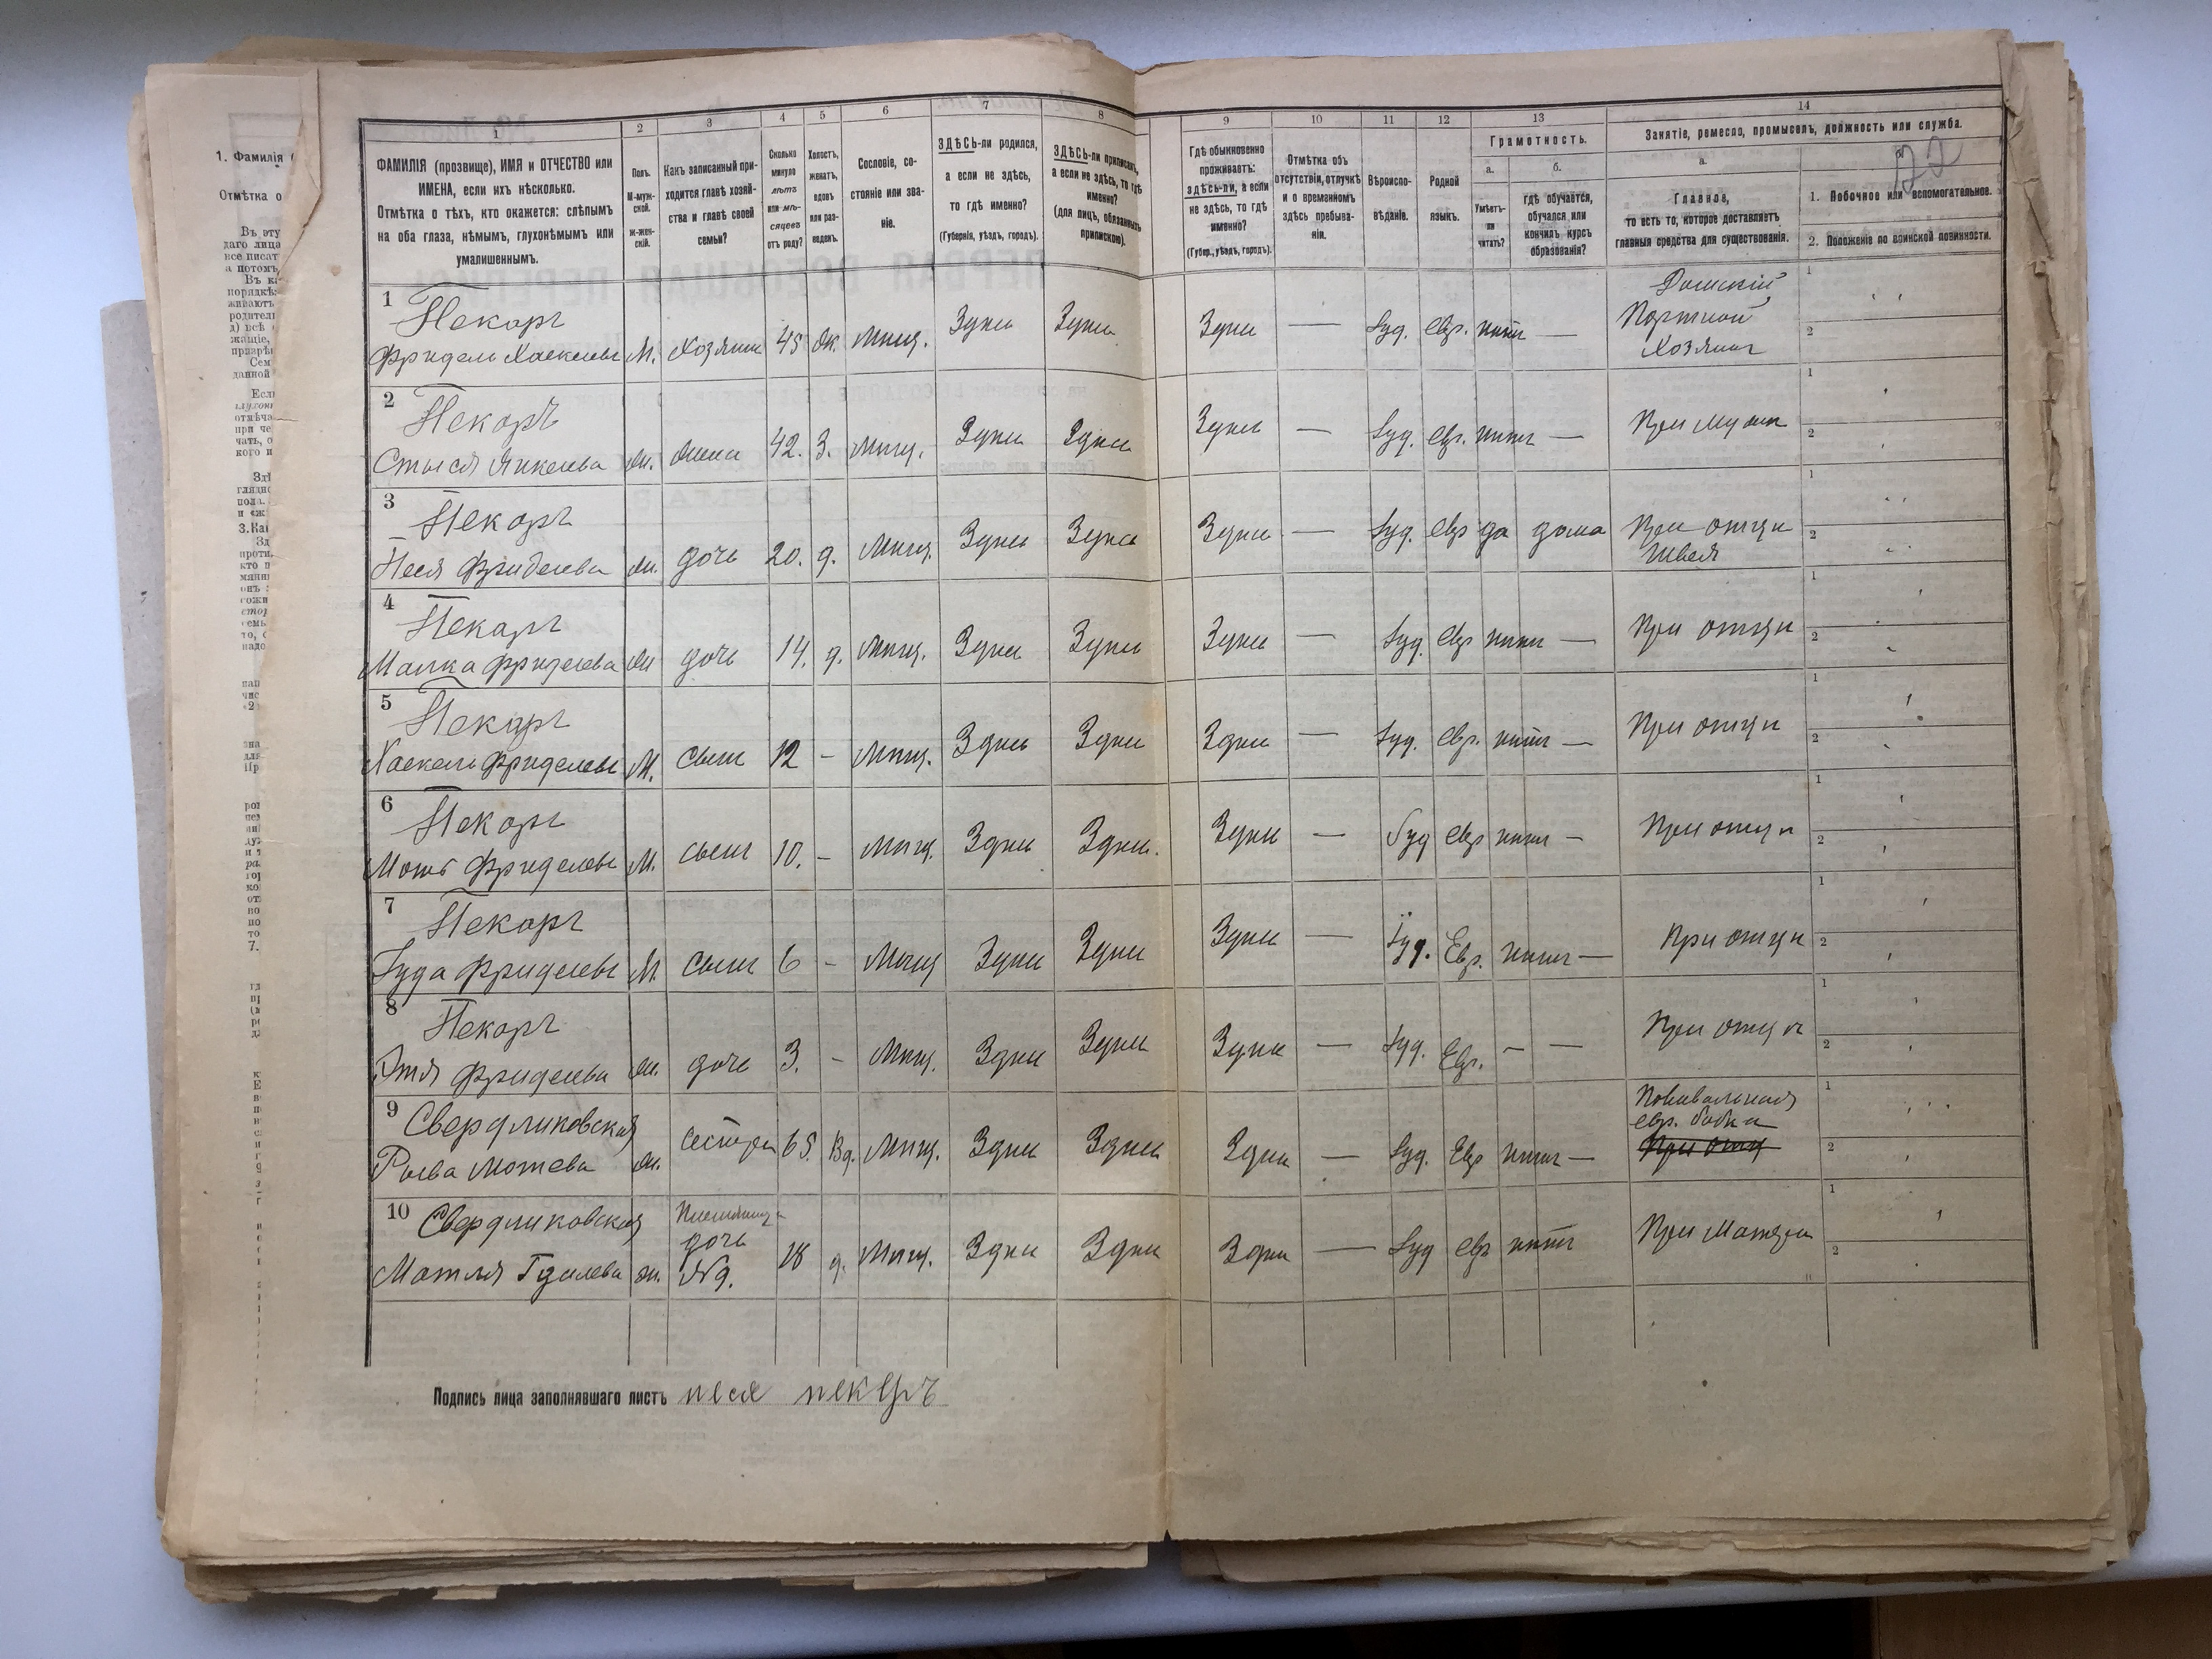 1 2 3 4 5 6 7 8
ФАМИЛІЯ (прозвище), ИМЯ и ОТЧЕСТВО или ИМЕНА, если ихъ нѣсколько.
Отмѣтка о тѣхъ, кто окажется: слѣпымъ на оба глаза, нѣмымъ, глухонѣмымъ или умалишеннымъ.
Полъ. М-мужской. ж-женскій.
Какъ записанный приходится главѣ хозяйства и главѣ своей семьи?
Сколько минуло лѣтъ или мѣсяцевъ отъ роду?
Холостъ, женатъ, вдовъ или разведенъ.
Сословіе, состояніе или званіе.
ЗДѢСЬ-ли родился, а если не здѣсь, то гдѣ именно? (Губернія, уѣздъ, городъ).
ЗДѢСЬ-ли приписанъ, а если не здѣсь, то гдѣ именно? (для лицъ, обязанныхъ припискою).
9 10 11 12 13 14
Гдѣ обыкновенно проживаетъ: здѣсь-ли, а если не здѣсь, то гдѣ именно? (Губер., уѣздъ, городъ).
Отмѣтка объ отсутствіи, отлучкѣ и о временномъ здѣсь пребываніи.
Вѣроисповѣданіе.
Родной языкъ.
Грамотность.
а. Умѣетъ-ли читать?
б. гдѣ обучается, обучался или кончилъ курсъ образованія?
Занятіе, ремесло, промыселъ, должность или служба.
а. Главное, то есть то, которое доставляетъ главныя средства для существованія.
1. Побочное или вспомогательное.
2. Положеніе по воинской повинности.
1 Пекарь
Фридель Хаскелевъ М. хозяинъ 45 Ж. Мѣщ. Здѣсь Здѣсь Здѣсь — Іуд. евр. нѣтъ — Дамскій Портной Хозяинъ
2 Пекарь
Стыся Янкелева Ж. жена 42. З. Мѣщ. Здѣсь Здѣсь Здѣсь — Іуд. евр. нѣтъ — При мужѣ
3 Пекарь
Песя Фриделева Ж. дочь 20. д. Мѣщ. Здѣсь Здѣсь Здѣсь — Іуд. евр да дома При отцѣ Швея
4 Пекарь
Малка Фриделева Ж дочь 14. д. Мѣщ. Здѣсь Здѣсь Здѣсь — Іуд. евр нѣтъ — При отцѣ
5 Пекарь
Хаскель Фриделевъ М. сынъ 12 - Мѣщ. Здѣсь Здѣсь Здѣсь — Іуд. евр. нѣтъ — При отцѣ
6 Пекарь
Моть Фриделевъ М. сынъ 10. - Мѣщ. Здѣсь Здѣсь. Здѣсь — Іуд евр нѣтъ — При отцѣ
7 Пекарь
Іуда Фриделевъ М. сынъ 6 - Мѣщ Здѣсь Здѣсь Здѣсь — Іуд. Евр. нѣтъ — При отцѣ
8 Пекарь
Этя Фриделева Ж. дочь 3. - Мѣщ. Здѣсь Здѣсь Здѣсь — Іуд. Евр. - — При отцѣ
9 Свердликовская
Рыва Мотева Ж. сестра 65. Вд. Мѣщ. Здѣсь Здѣсь Здѣсь — Іуд. Евр нѣтъ — Повивальная евр. бабка
10 Свердликовская
Мотля Гдилева Ж. Племянница дочь №9. 18 д. Мѣщ. Здѣсь Здѣсь Здѣсь — Іуд евр нѣтъ При Матери
Подпись лица заполнявшаго листъ песя пекарь